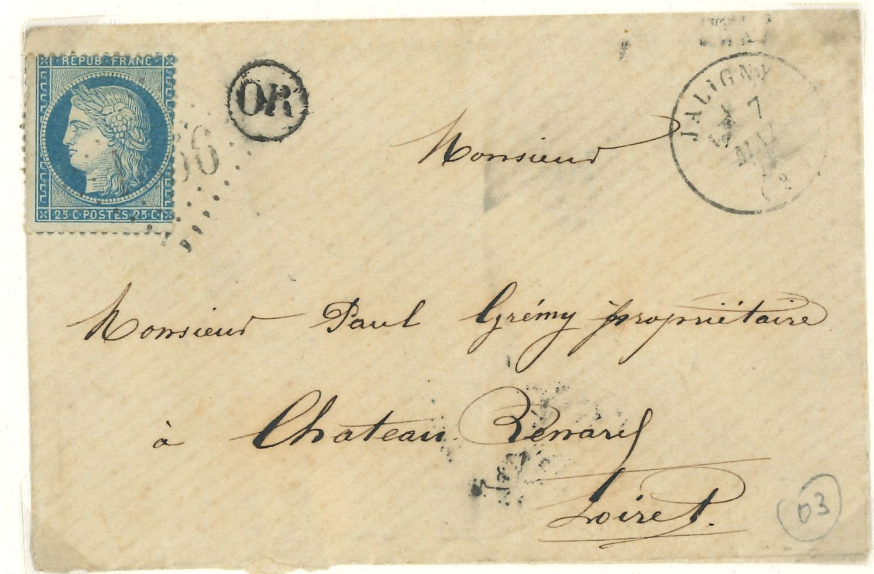 REPUB FRANC
25·C·POSTES·25·C
OR
JALIGNY
7
MAI
Monsieur
Monsieur Paul Grémy propriétaire
à Chateau Renard
Loiret.
03